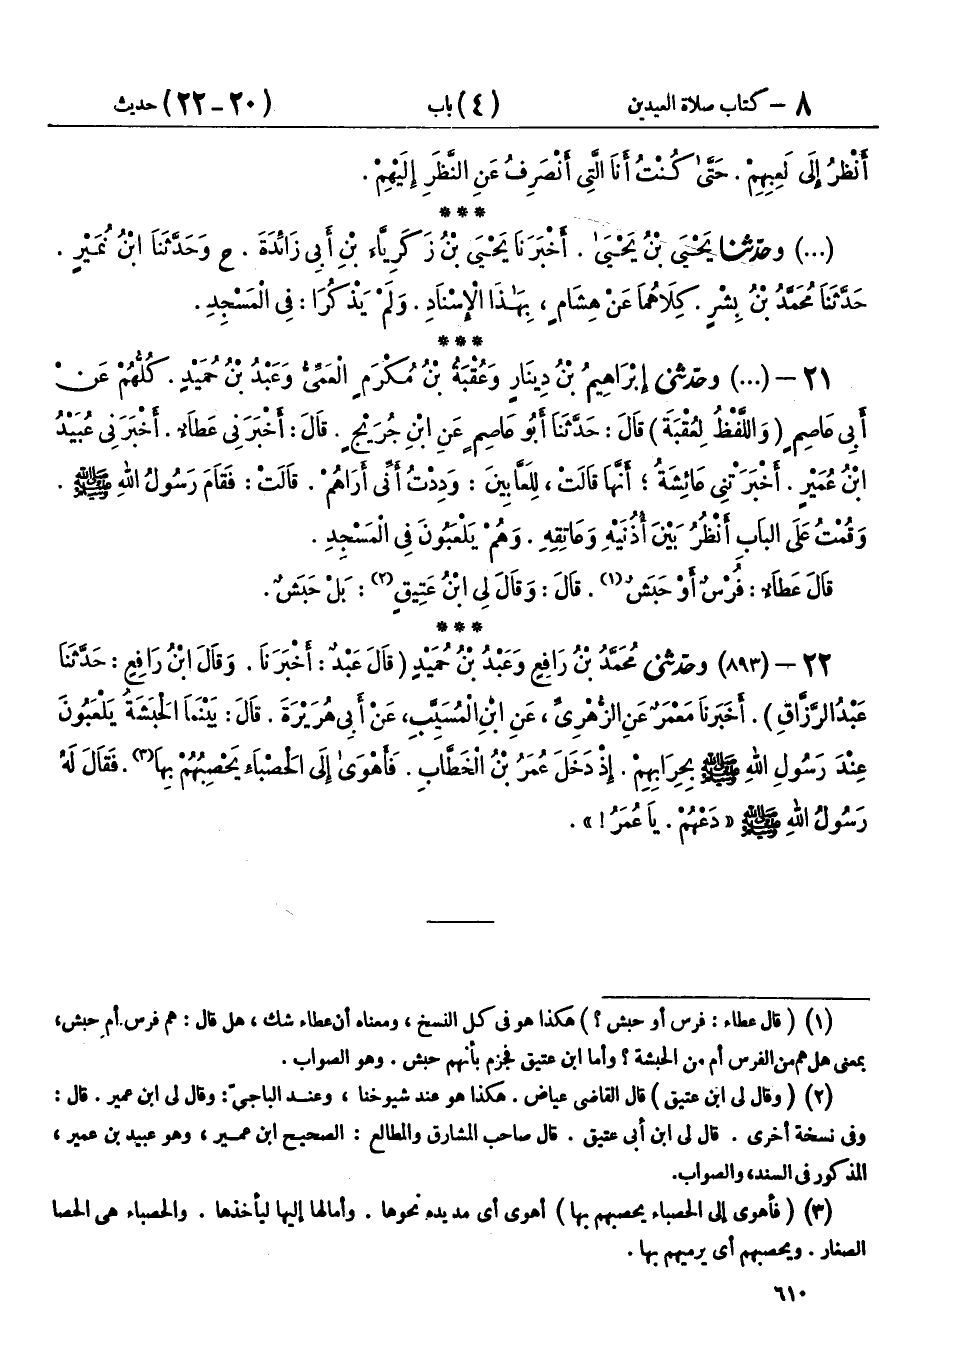 ٨ – كتاب صلاة العيدين (٤) باب (٢٠ – ٢٢) حديث
أَنْظُرُ إِلَى لَعِبِهِمْ . حَتَّىٰ كُنْتُ أَنَا الَّتِي أَنْصَرِفُ عَنِ النَّظَرِ إِلَيْهِمْ .
***
(...) وحدّثنا يَحْيَىٰ بْنُ يَحْيَىٰ . أَخْبَرَنَا يَحْيَىٰ بْنُ زَكَرِيَّاء بْنِ أَبِي زَائِدَةَ . ح وَحَدَّثَنَا ابْنُ نُمَيْرٍ .
حَدَّثَنَا مُحَمَّدُ بْنُ بِشْرٍ . كِلَاهُمَا عَنْ هِشَامٍ ، بِهَٰذَا الْإِسْنَادِ . وَلَمْ يَذْكُرَا : فِي الْمَسْجِدِ .
***
٢١ – (...) وحدّثني إِبْرَاهِيمُ بْنُ دِينَارٍ وَعُقْبَةُ بْنُ مُكْرَمٍ الْعَمِّيُّ وَعَبْدُ بْنُ حُمَيْدٍ . كُلُّهُمْ عَنْ
أَبِي عَاصِمٍ ( وَاللَّفْظُ لِعُقْبَةَ ) قَالَ : حَدَّثَنَا أَبُو عَاصِمٍ عَنِ ابْنِ جُرَيْجٍ . قَالَ : أَخْبَرَنِي عَطَاءٌ . أَخْبَرَنِي عُبَيْدُ
ابْنُ عُمَيْرٍ . أَخْبَرَتْنِي عَائِشَةُ ؛ أَنَّهَا قَالَتْ ، لِلَعَّابِينَ : وَدِدْتُ أَنِّي أَرَاهُمْ . قَالَتْ : فَقَامَ رَسُولُ اللهِ ﷺ .
وَقُمْتُ عَلَى الْبَابِ أَنْظُرُ بَيْنَ أُذُنَيْهِ وَعَاتِقِهِ . وَهُمْ يَلْعَبُونَ فِي الْمَسْجِدِ .
قَالَ عَطَاءٌ : فُرْسٌ أَوْ حَبَشٌ (١) . قَالَ : وَقَالَ لِي ابْنُ عَتِيقٍ (٢) : بَلْ حَبَشٌ .
***
٢٢ – (٨٩٣) وحدّثني مُحَمَّدُ بْنُ رَافِعٍ وَعَبْدُ بْنُ حُمَيْدٍ ( قَالَ عَبْدٌ : أَخْبَرَنَا . وَقَالَ ابْنُ رَافِعٍ : حَدَّثَنَا
عَبْدُ الرَّزَّاقِ ) . أَخْبَرَنَا مَعْمَرٌ عَنِ الزُّهْرِيِّ ، عَنِ ابْنِ الْمُسَيَّبِ ، عَنْ أَبِي هُرَيْرَةَ . قَالَ : بَيْنَمَا الْحَبَشَةُ يَلْعَبُونَ
عِنْدَ رَسُولِ اللهِ ﷺ بِحِرَابِهِمْ . إِذْ دَخَلَ عُمَرُ بْنُ الْخَطَّابِ . فَأَهْوَىٰ إِلَى الْحَصْبَاءِ يَحْصِبُهُمْ بِهَا (٣) . فَقَالَ لَهُ
رَسُولُ اللهِ ﷺ « دَعْهُمْ . يَا عُمَرُ ! » .
(١) ( قال عطاء : فرس أو حبش ؟ ) هكذا هو في كل النسخ ، ومعناه أن عطاء شك ، هل قال : هم فرس أم حبش ،
بمعنى هل هم من الفرس أم من الحبشة ؟ وأما ابن عتيق فجزم بأنهم حبش . وهو الصواب .
(٢) ( وقال لي ابن عتيق ) قال القاضي عياض . هكذا هو عند شيوخنا ، وعند الباجيّ : وقال لي ابن عمير . قال :
وفي نسخة أخرى . قال لي ابن أبي عتيق . قال صاحب المشارق والمطالع : الصحيح ابن عمير ، وهو عبيد بن عمير ،
المذكور في السند ، والصواب .
(٣) ( فأهوى إلى الحصباء يحصبهم بها ) أهوى أي مد يده نحوها . وأمالها إليها ليأخذها . والحصباء هي الحصا
الصغار . ويحصبهم أي يرميهم بها .
٦١٠